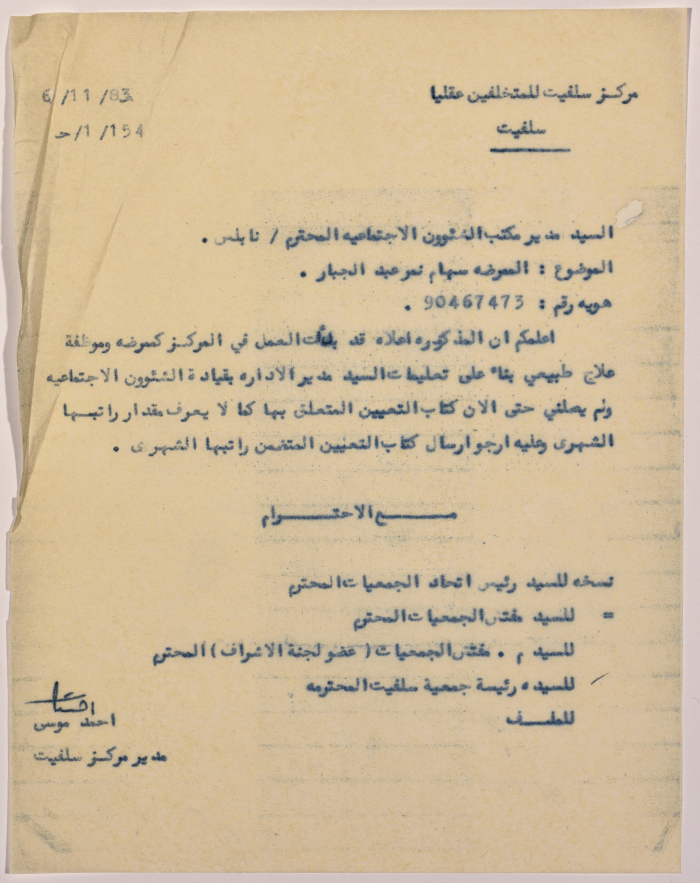 مركز سلفيت للمتخلفين عقليا
6/11/83
سلفيت
حـ/1/154
السيد مدير مكتب الشئوون الاجتماعيه المحترم / نابلس .
الموضوع : الممرضه سهام نمر عبد الجبار .
هويه رقم : 90467473 .
اعلمكم ان المذكوره اعلاه قد بدأت العمل في المركز كممرضه وموظفة
علاج طبيعي بناء على تعليمات السيد مدير الاداره بقيادة الشئوون الاجتماعيه
ولم يصلني حتى الان كتاب التعيين المتعلق بها كما لا يعرف مقدار راتبها
الشهرى وعليه ارجو ارسال كتاب التعيين المتضمن راتبها الشهرى .
مـــع الاحتــرام
نسخه للسيد رئيس اتحاد الجمعيات المحترم
= للسيد مفتش الجمعيات المحترم
للسيد م . مفتش الجمعيات ( عضو لجنة الاشراف ) المحترم
للسيده رئيسة جمعية سلفيت المحترمه
للملــف
احمد موسى
مدير مركز سلفيت